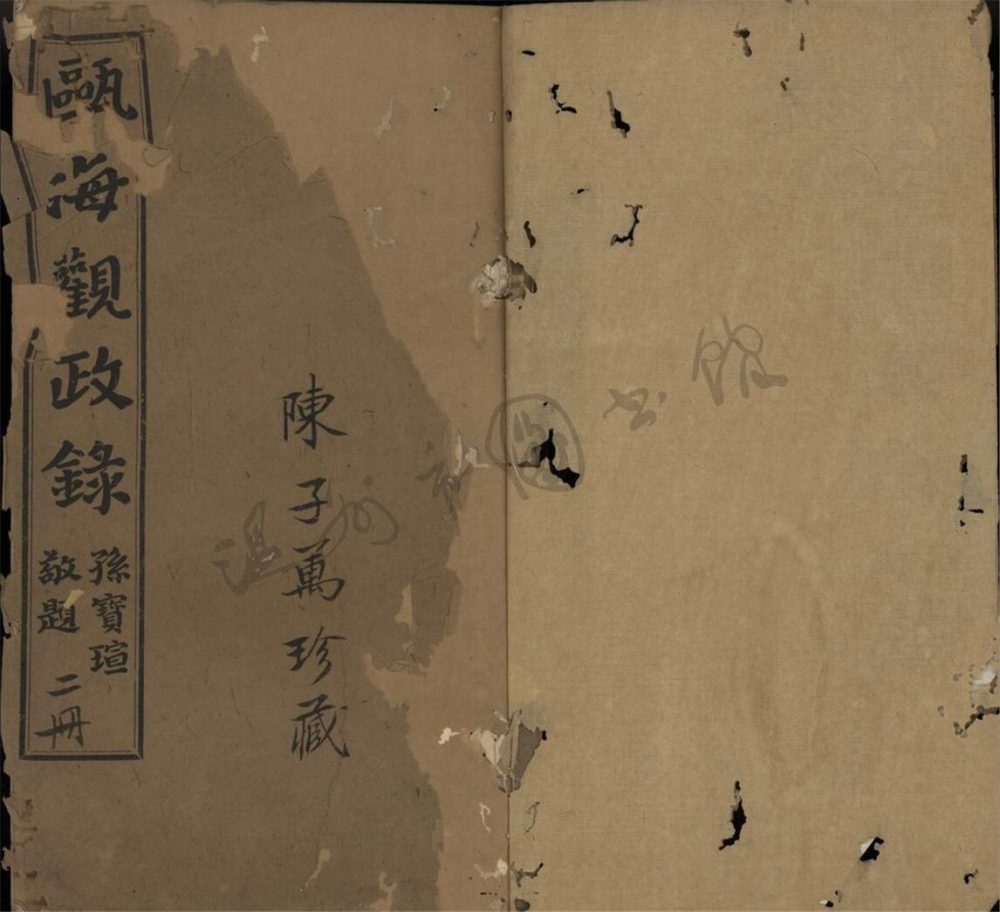 甌海觀政錄
孫寶瑄
敬題
二冊
陳子萬珍藏
温州市圖书馆